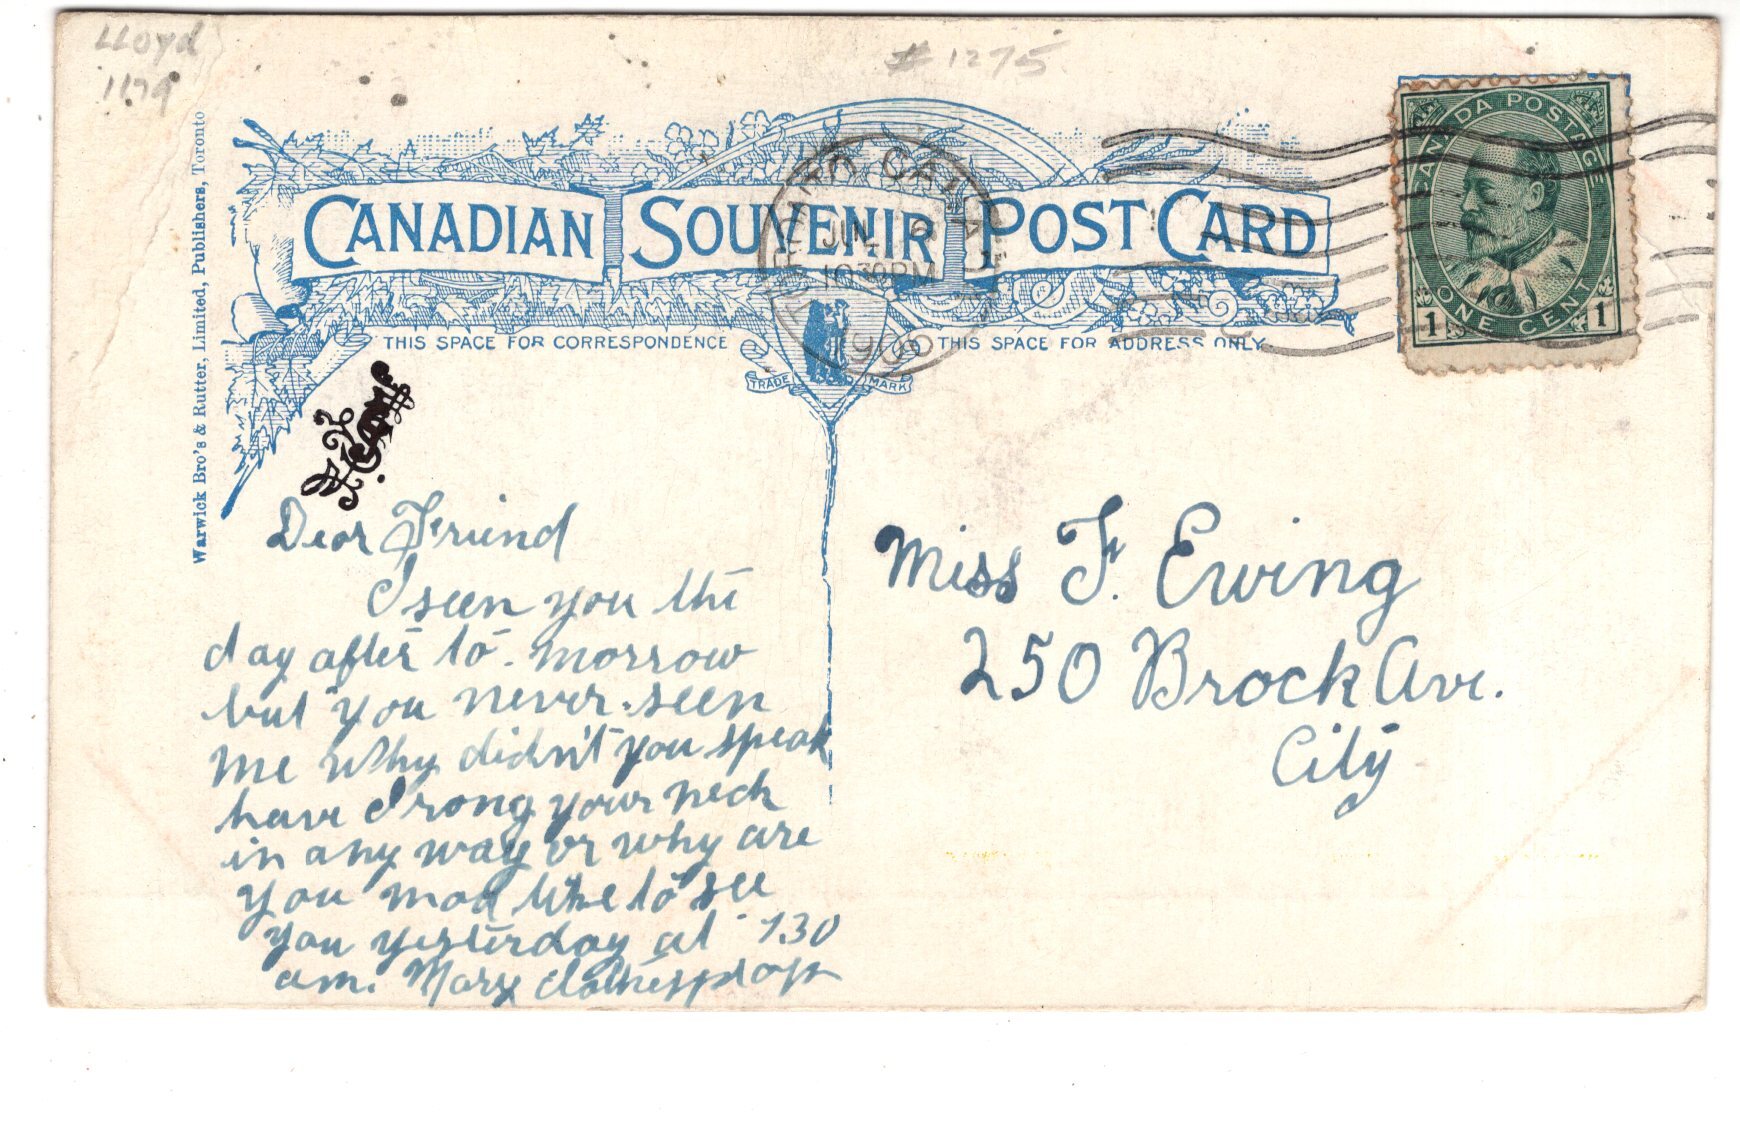 LLoyd
1179
# 1275
Warwick Bro's & Rutter, Limited, Publishers, Toronto
CANADIAN SOUVENIR POST CARD
TORONTO CANADA
JUN 6
10 30 PM
1906
CANADA POSTAGE
1 ONE CENT 1
THIS SPACE FOR CORRESPONDENCE
THIS SPACE FOR ADDRESS ONLY
TRADE MARK
Dear Friend
I seen you the
day after to-morrow
but you never seen
me Why didn't you speak
have I rong your neck
in any way or why are
you mad like to see
you yesterday at 7.30
am. Mary
Miss F. Ewing
250 Brock Ave.
City